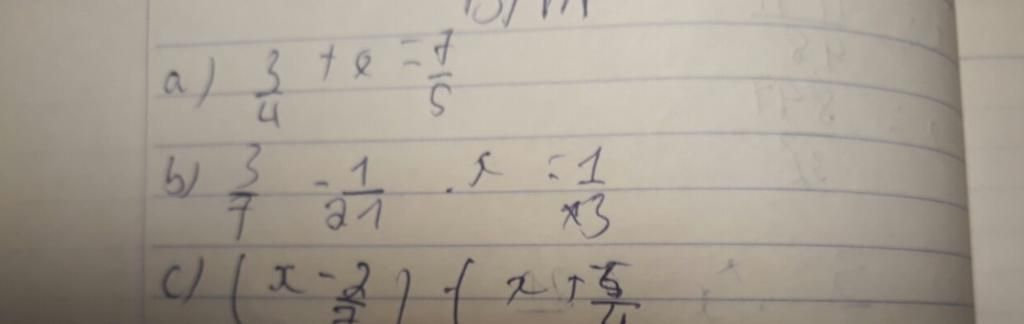 a) 3/4 + x = 7/5
b) 3/7 - 1/21 . x = 1/3
c) (x - 2/7) . (x + 5/4